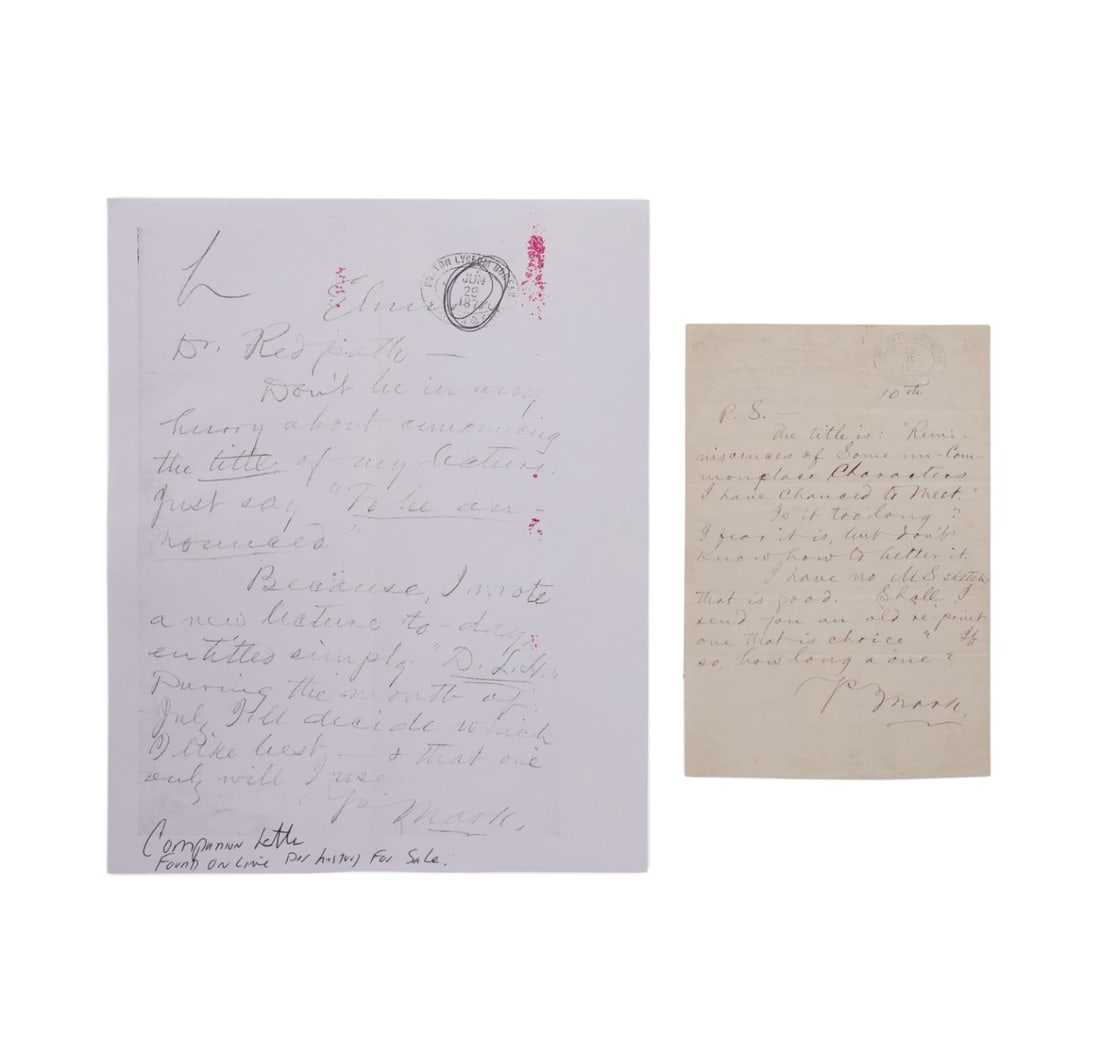 L
BOSTON LYCEUM BUREAU
JUN
26
187
Elmi
Dr. Redpath —
Don't be in any
hurry about announcing
the title of my lecture.
Just say "To be an-
nounced."
Because, I wrote
a new lecture to-day,
entitled simply "D. L. H."
During the month of
July I'll decide which
I like best — & that one
only will I use.
Yrs
Mark.
Companion Letter
Found on line For history For Sale.
15
187
10th
P. S. —
The title is: "Remi-
niscences of Some un-Com-
monplace Characters
I have Chanced to Meet"
Is it too long?
I fear it is, but don't
know how to better it.
I have no MS sketch
that is good. Shall I
send you an old re-print
one that is choice? If
so, how long a one?
Yr Mark.